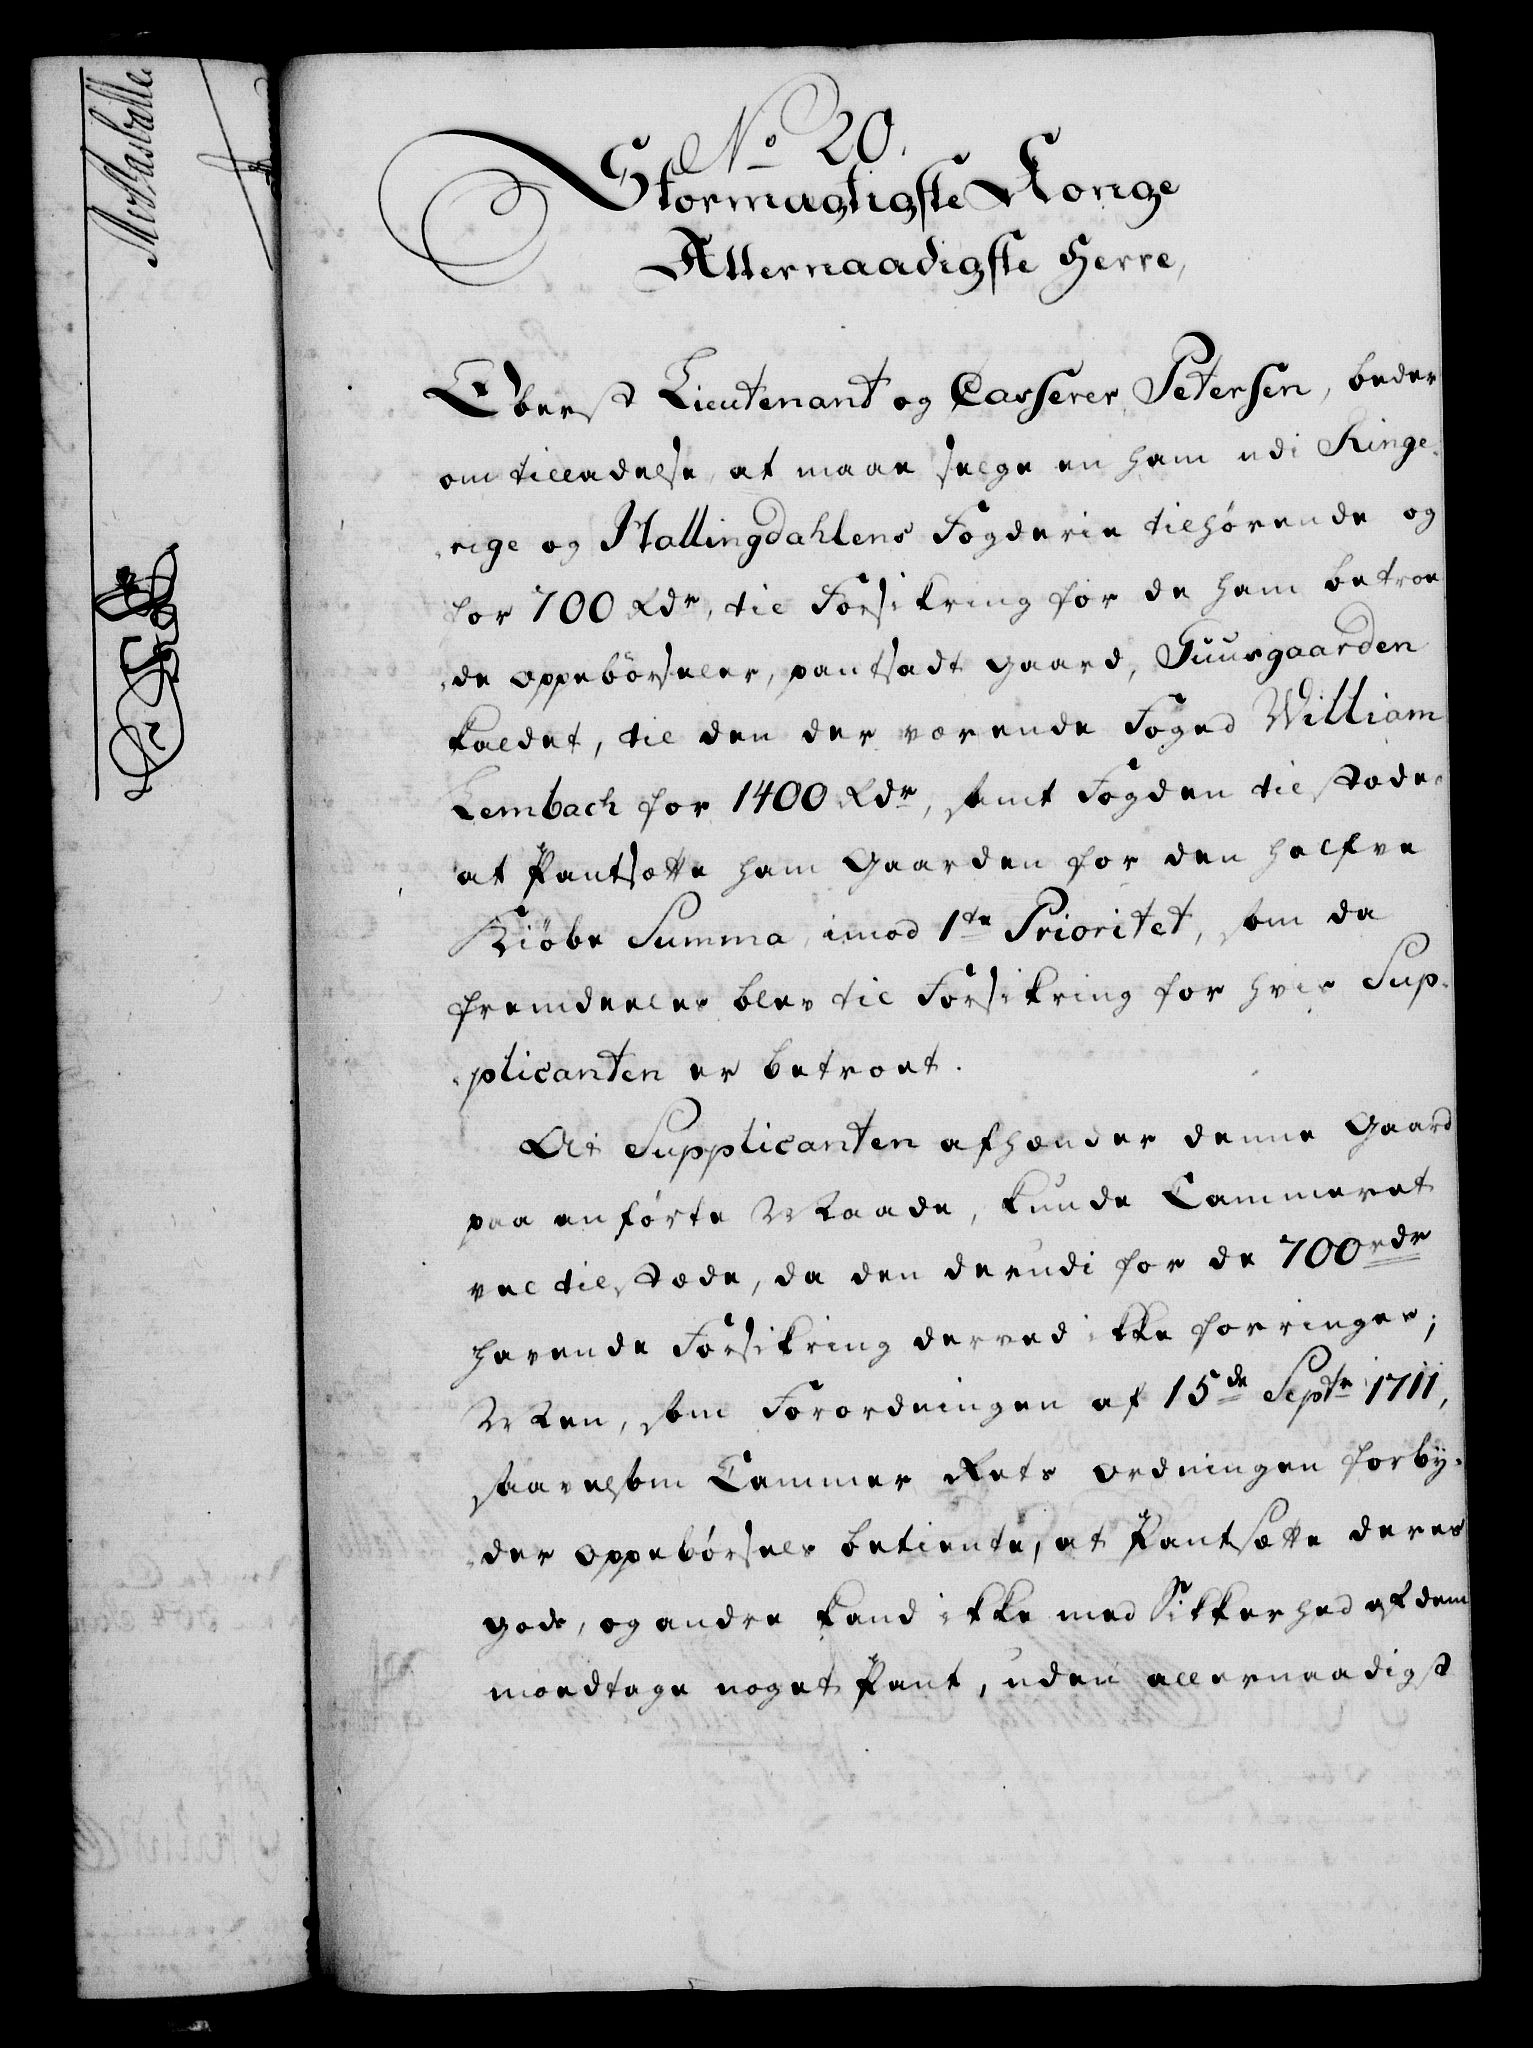 No 20.
Stormægtigste Konge
Allernaadigste Herre,
Oberst Lieutenant og Casserer Petersen, beder
om tilladelse, at maae selge en ham udi Ringe-
-rige og Hallingdahlens Fogderie tilhørende og
for 700 Rdr, til Forsikring for de ham betroe
-de oppebørseler, pantsadt Gaard, Tuusgaarden
kaldet, til den der værende Foged William
Lembach for 1400 Rdr, samt Fogden tilstæde
at Pantsætte ham Gaarden for den halfve
Kiøbe Summa, imod 1te Prioritet, som da
fremdeeles blev til Forsikring for hvis Sup-
-plicanten er betroet.
At Supplicanten afhænder denne Gaard
paa anførte Maade, kunde Cammeret
vel tilstæde, da den derudi for de 700 rdr
havende Forsikring derved ikke forringes;
Men, som Forordningen af 15de Septr 1711,
saavelsom Cammer Rets Ordningen forby-
-der oppebørsels betiente, at Pantsætte deres
gods, og andre kand ikke med Sikkerhed af dem
modtage noget Pant, uden allernaadigst